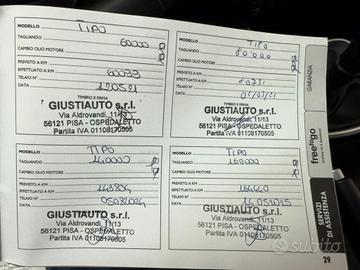 MODELLO TIPO
TAGLIANDO 60000
CAMBIO OLIO MOTORE
PREVISTO A KM
EFFETTUATO A KM 60033
DATA
TIMBRO E FIRMA
GIUSTIAUTO s.r.l.
Via Aldrovandi, 11/13
56121 PISA - OSPEDALETTO
Partita IVA 01108170505
MODELLO TIPO
TAGLIANDO 80000
CAMBIO OLIO MOTORE
PREVISTO A KM
EFFETTUATO A KM
DATA
TIMBRO E FIRMA
GIUSTIAUTO s.r.l.
Via Aldrovandi,
56121 PISA - OSPEDALETTO
Partita IVA 01108170505
MODELLO TIPO
TAGLIANDO 140000
CAMBIO OLIO MOTORE
PREVISTO A KM
EFFETTUATO A KM
DATA
GIUSTIAUTO s.r.l.
Via Aldrovandi, 11/13
56121 PISA - OSPEDALETTO
Partita IVA 01108170505
MODELLO TIPO
TAGLIANDO 160000
CAMBIO OLIO MOTORE
PREVISTO A KM
EFFETTUATO A KM
DATA
GIUSTIAUTO s.r.l.
Via Aldrovandi,
56121 PISA - OSPEDALETTO
Partita IVA 01108170505
GARANZIA
freetogo
SERVIZI
DI ASSISTENZA
29
subito